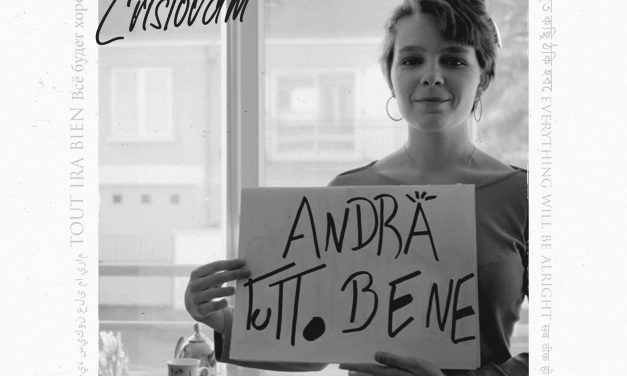 Cristovam
ANDRÀ
TUTTO BENE
TOUT IRA BIEN Всё будет хоро
EVERYTHING WILL BE ALRIGHT सब ठीक हो